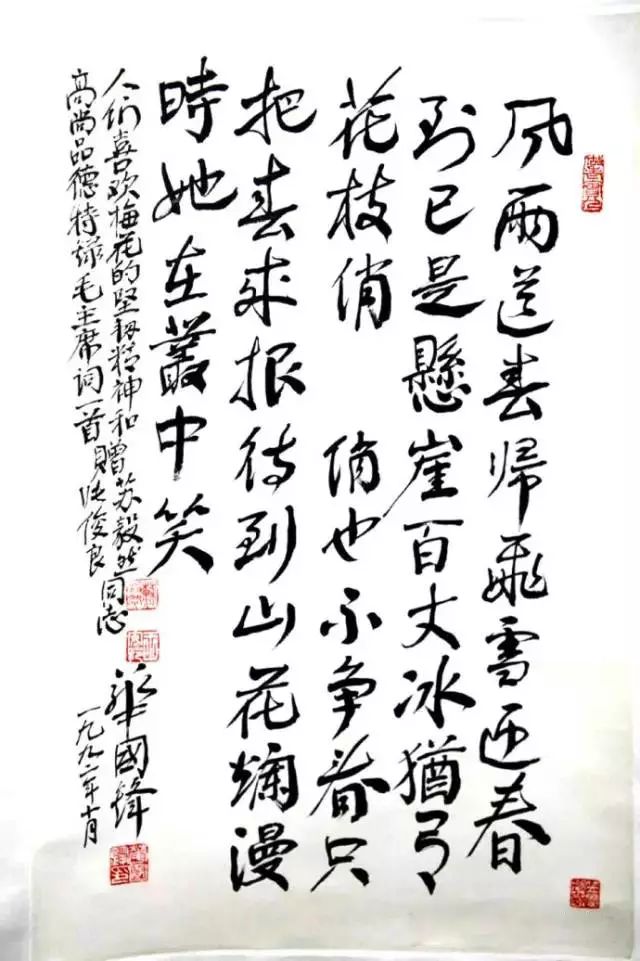 风雨送春帰飛雪迎春
到已是懸崖百丈冰猶有
花枝俏 俏也不争春只
把春来报待到山花爛漫
時她在叢中笑
人们喜欢梅花的坚韧精神和 赠苏毅然同志
高尚品德特録毛主席词一首 俊良
華國鋒
一九九二年十月